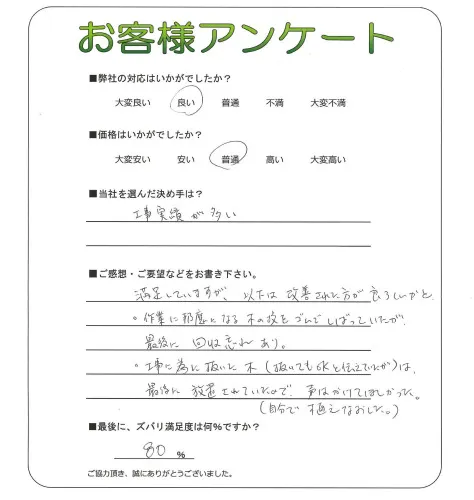 お客様アンケート
■弊社の対応はいかがでしたか？
大変良い 良い 普通 不満 大変不満
■価格はいかがでしたか？
大変安い 安い 普通 高い 大変高い
■当社を選んだ決め手は？
工事実績が多い
■ご感想・ご要望などをお書き下さい。
満足していますが、以下は改善された方が良ろしいかと
・作業に邪魔になる木の枝をゴムでしばっていたが
最後に回収忘れあり。
・工事に為に抜いた木(抜いてもOKと伝えていたが)は、
最後に放置されていたので、声はかけてほしかった。
(自分で植えなおした。)
■最後に、ズバリ満足度は何%ですか？
80 %
ご協力頂き、誠にありがとうございました。